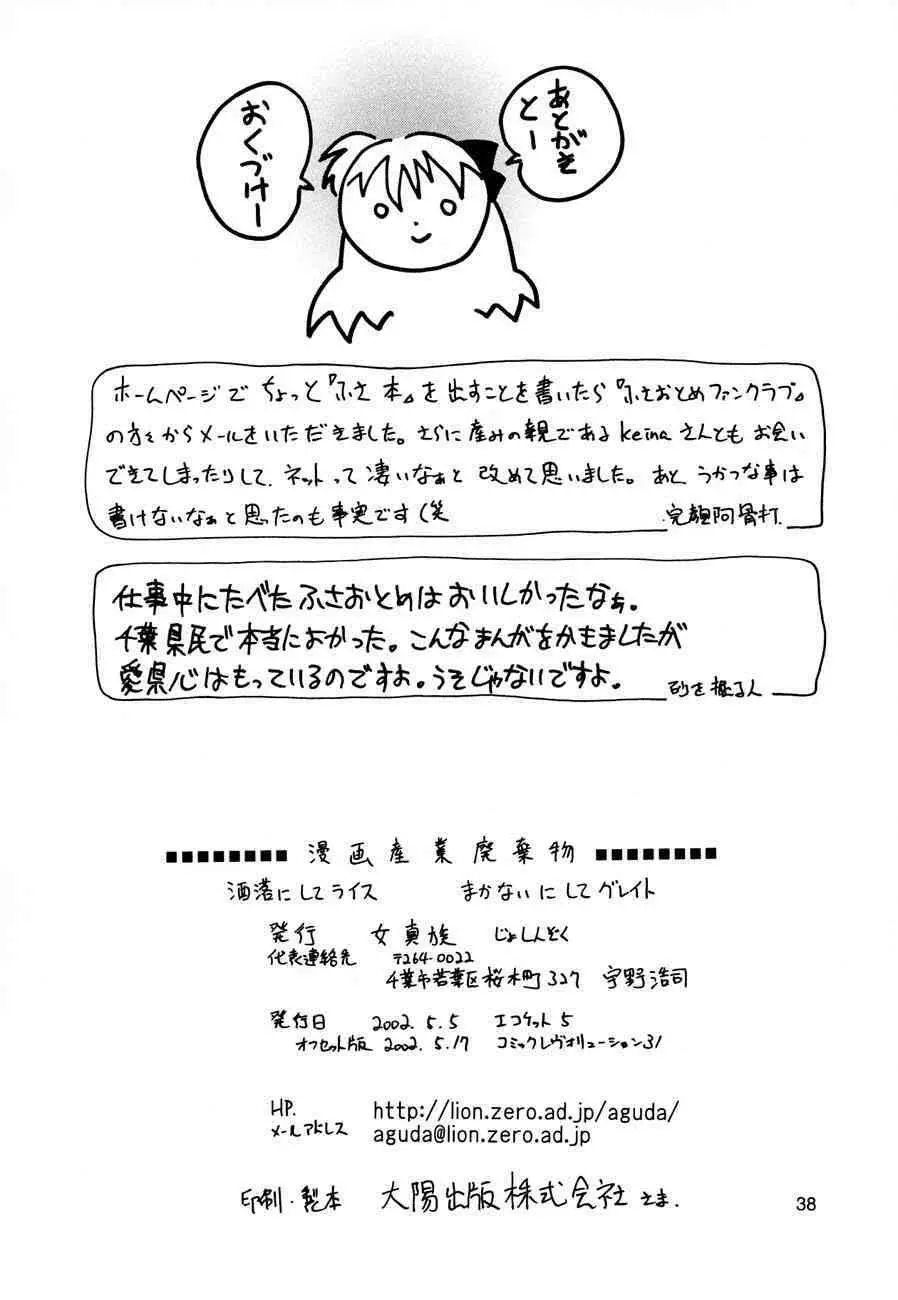 あとがき
とー
おくづけー
ホームページでちょっと『ふさ本』を出すことを書いたら『ふさおとめファンクラブ』
の方々からメールをいただきました。さらに産みの親であるkeinaさんともお会い
できてしまったりして、ネットって凄いなぁと改めて思いました。あと、うかつな事は
書けないなぁと思ったのも事実です(笑
完顔阿骨打
仕事中にたべたふさおとめはおいしかったなぁ。
千葉県民で本当によかった。こんなまんがをかきましたが
愛県心はもっているのですよ。うそじゃないですよ。
砂を掘る人
■■■■■■■■ 漫画産業廃棄物 ■■■■■■■■
洒落にしてライス まかないにしてグレイト
発行 女真族 じょしんぞく
代表連絡先 〒264-0022
千葉市若葉区桜木町327 宇野浩司
発行日 2002.5.5 エコケット5
オフセット版 2002.5.17 コミックレヴォリューション31
HP. http://lion.zero.ad.jp/aguda/
メールアドレス aguda@lion.zero.ad.jp
印刷・製本 大陽出版株式会社さま.
38